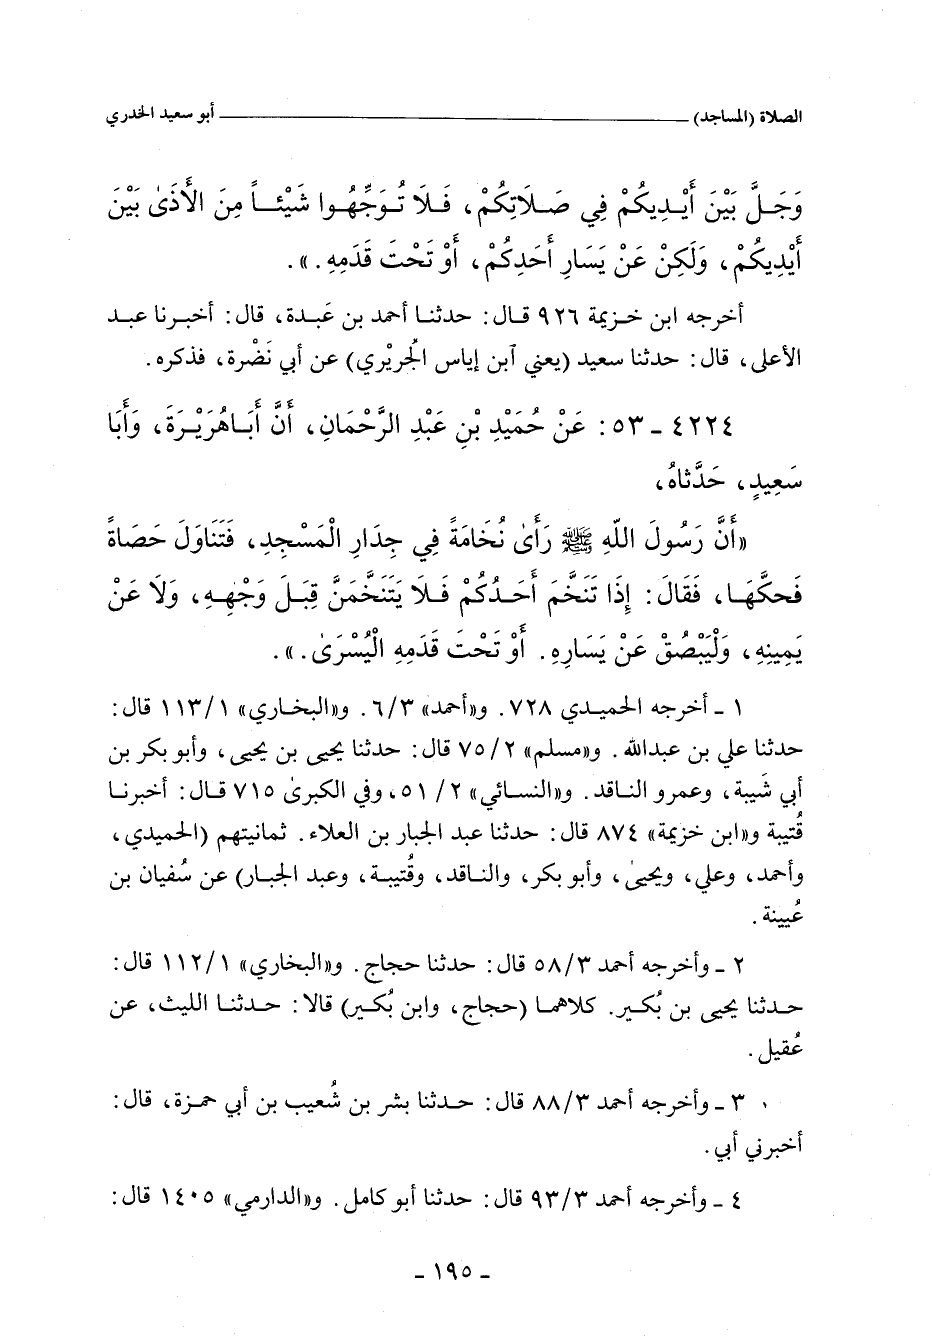 الصلاة (المساجد) ــــــــــ أبو سعيد الخدري
وَجَلَّ بَيْنَ أَيْـدِيكُمْ فِي صَـلَاتِكُمْ، فَـلَا تُـوَجِّهُـوا شَيْئـاً مِنَ الْأَذَىٰ بَيْنَ
أَيْدِيكُمْ، وَلَكِنْ عَنْ يَسَارِ أَحَدِكُمْ، أَوْ تَحْتَ قَدَمِهِ.».
أخرجه ابن خـزيمة ٩٢٦ قـال: حدثنـا أحمد بن عَبـدة، قال: أخبـرنا عبـد
الأعلى، قال: حدثنا سعيد (يعني آبن إياس الجُريْري) عن أبي نَضْرة، فذكره.
٤٢٢٤ ـ ٥٣: عَنْ حُمَيْدِ بْنِ عَبْدِ الرَّحْمَانِ، أَنَّ أَبَـاهُرَيْـرَةَ، وَأَبَا
سَعِيدٍ، حَدَّثاهُ،
«أَنَّ رَسُولَ اللّهِ ﷺ رَأَىٰ نُخَامَةً فِي جِدَارِ الْمَسْجِدِ، فَتَنَاوَلَ حَصَاةً
فَحكَّهَـا، فَقَالَ: إِذَا تَنَخَّمَ أَحَـدُكُمْ فَـلا يَتَنَخَّمَنَّ قِبَلَ وَجْهِـهِ، وَلَا عَنْ
يَمِينِهِ، وَلْيَبْصُقْ عَنْ يَسَارِهِ. أَوْ تَحْتَ قَدَمِهِ الْيُسْرَىٰ.».
١ ـ أخرجه الحميـدي ٧٢٨. و«أحمد» ٦/٣. و«البخـاري» ١١٣/١ قال:
حدثنا علي بن عبدالله. و«مسلم» ٧٥/٢ قال: حدثنا يحيى بن يحيى، وأبو بكر بن
أبي شَيبة، وعمرو النـاقد. و«النسـائي» ٥١/٢، وفي الكبرىٰ ٧١٥ قـال: أخبرنـا
قُتيبة و«ابن خزيمة» ٨٧٤ قال: حدثنا عبد الجبار بن العلاء. ثمانيتهم (الحميدي،
وأحمد، وعلي، ويحيىٰ، وأبو بكر، والنـاقد، وقُتيبـة، وعبد الجبـار) عن سُفيان بن
عُيينة.
٢ ـ وأخرجه أحمد ٥٨/٣ قال: حدثنا حجاج. و«البخاري» ١١٢/١ قال:
حـدثنا يحيى بن بُكـير. كلاهمـا (حجاج، وابن بُكـير) قالا: حـدثنـا الليث، عن
عُقيل.
٣ ـ وأخرجه أحمد ٨٨/٣ قال: حـدثنا بشر بن شُعيب بن أبي حمـزة، قال:
أخبرني أبي.
٤ ـ وأخرجه أحمد ٩٣/٣ قال: حدثنا أبو كامل. و«الدارمي» ١٤٠٥ قال:
ـ ١٩٥ ـ